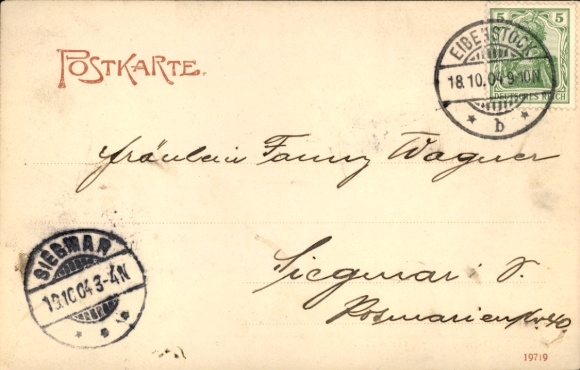 POSTKARTE.
5 5
DEUTSCHES REICH
EIBENSTOCK
18.10.04 9-10N
* b *
Fräulein Fanny Wagner
SIEGMAR
19.10.04 3-4N
Siegmar i. S.
19719